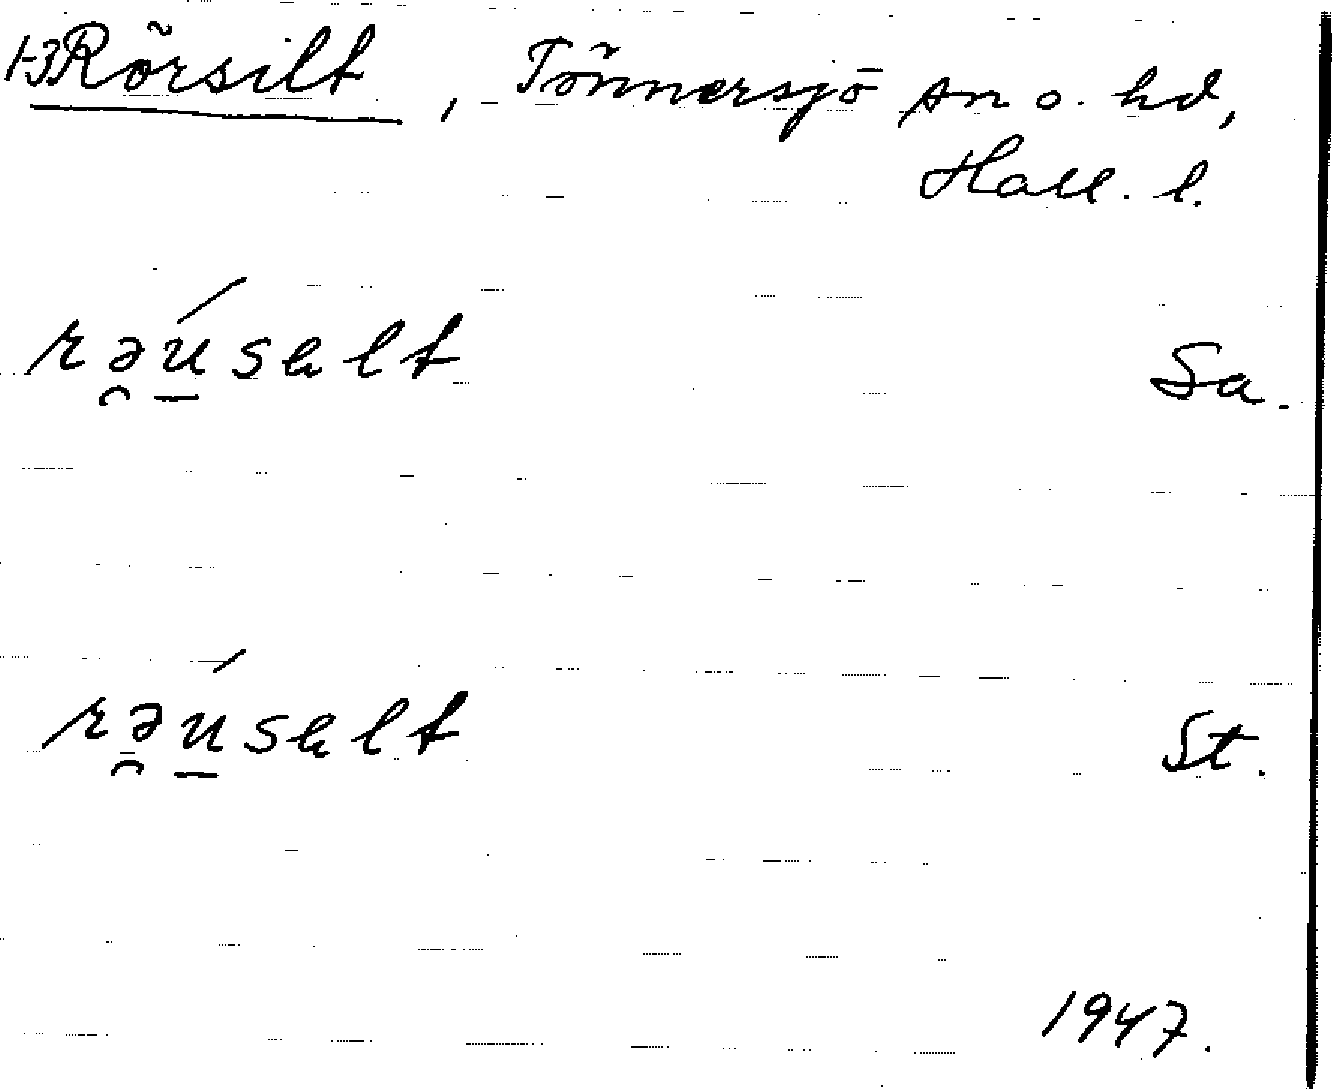 1-3 Rörsilt, Tönnersjö sn o. hd,
Hall. l.
rə̯ú̲sælt Sa.
rə̯ú̲sælt St.
1947.